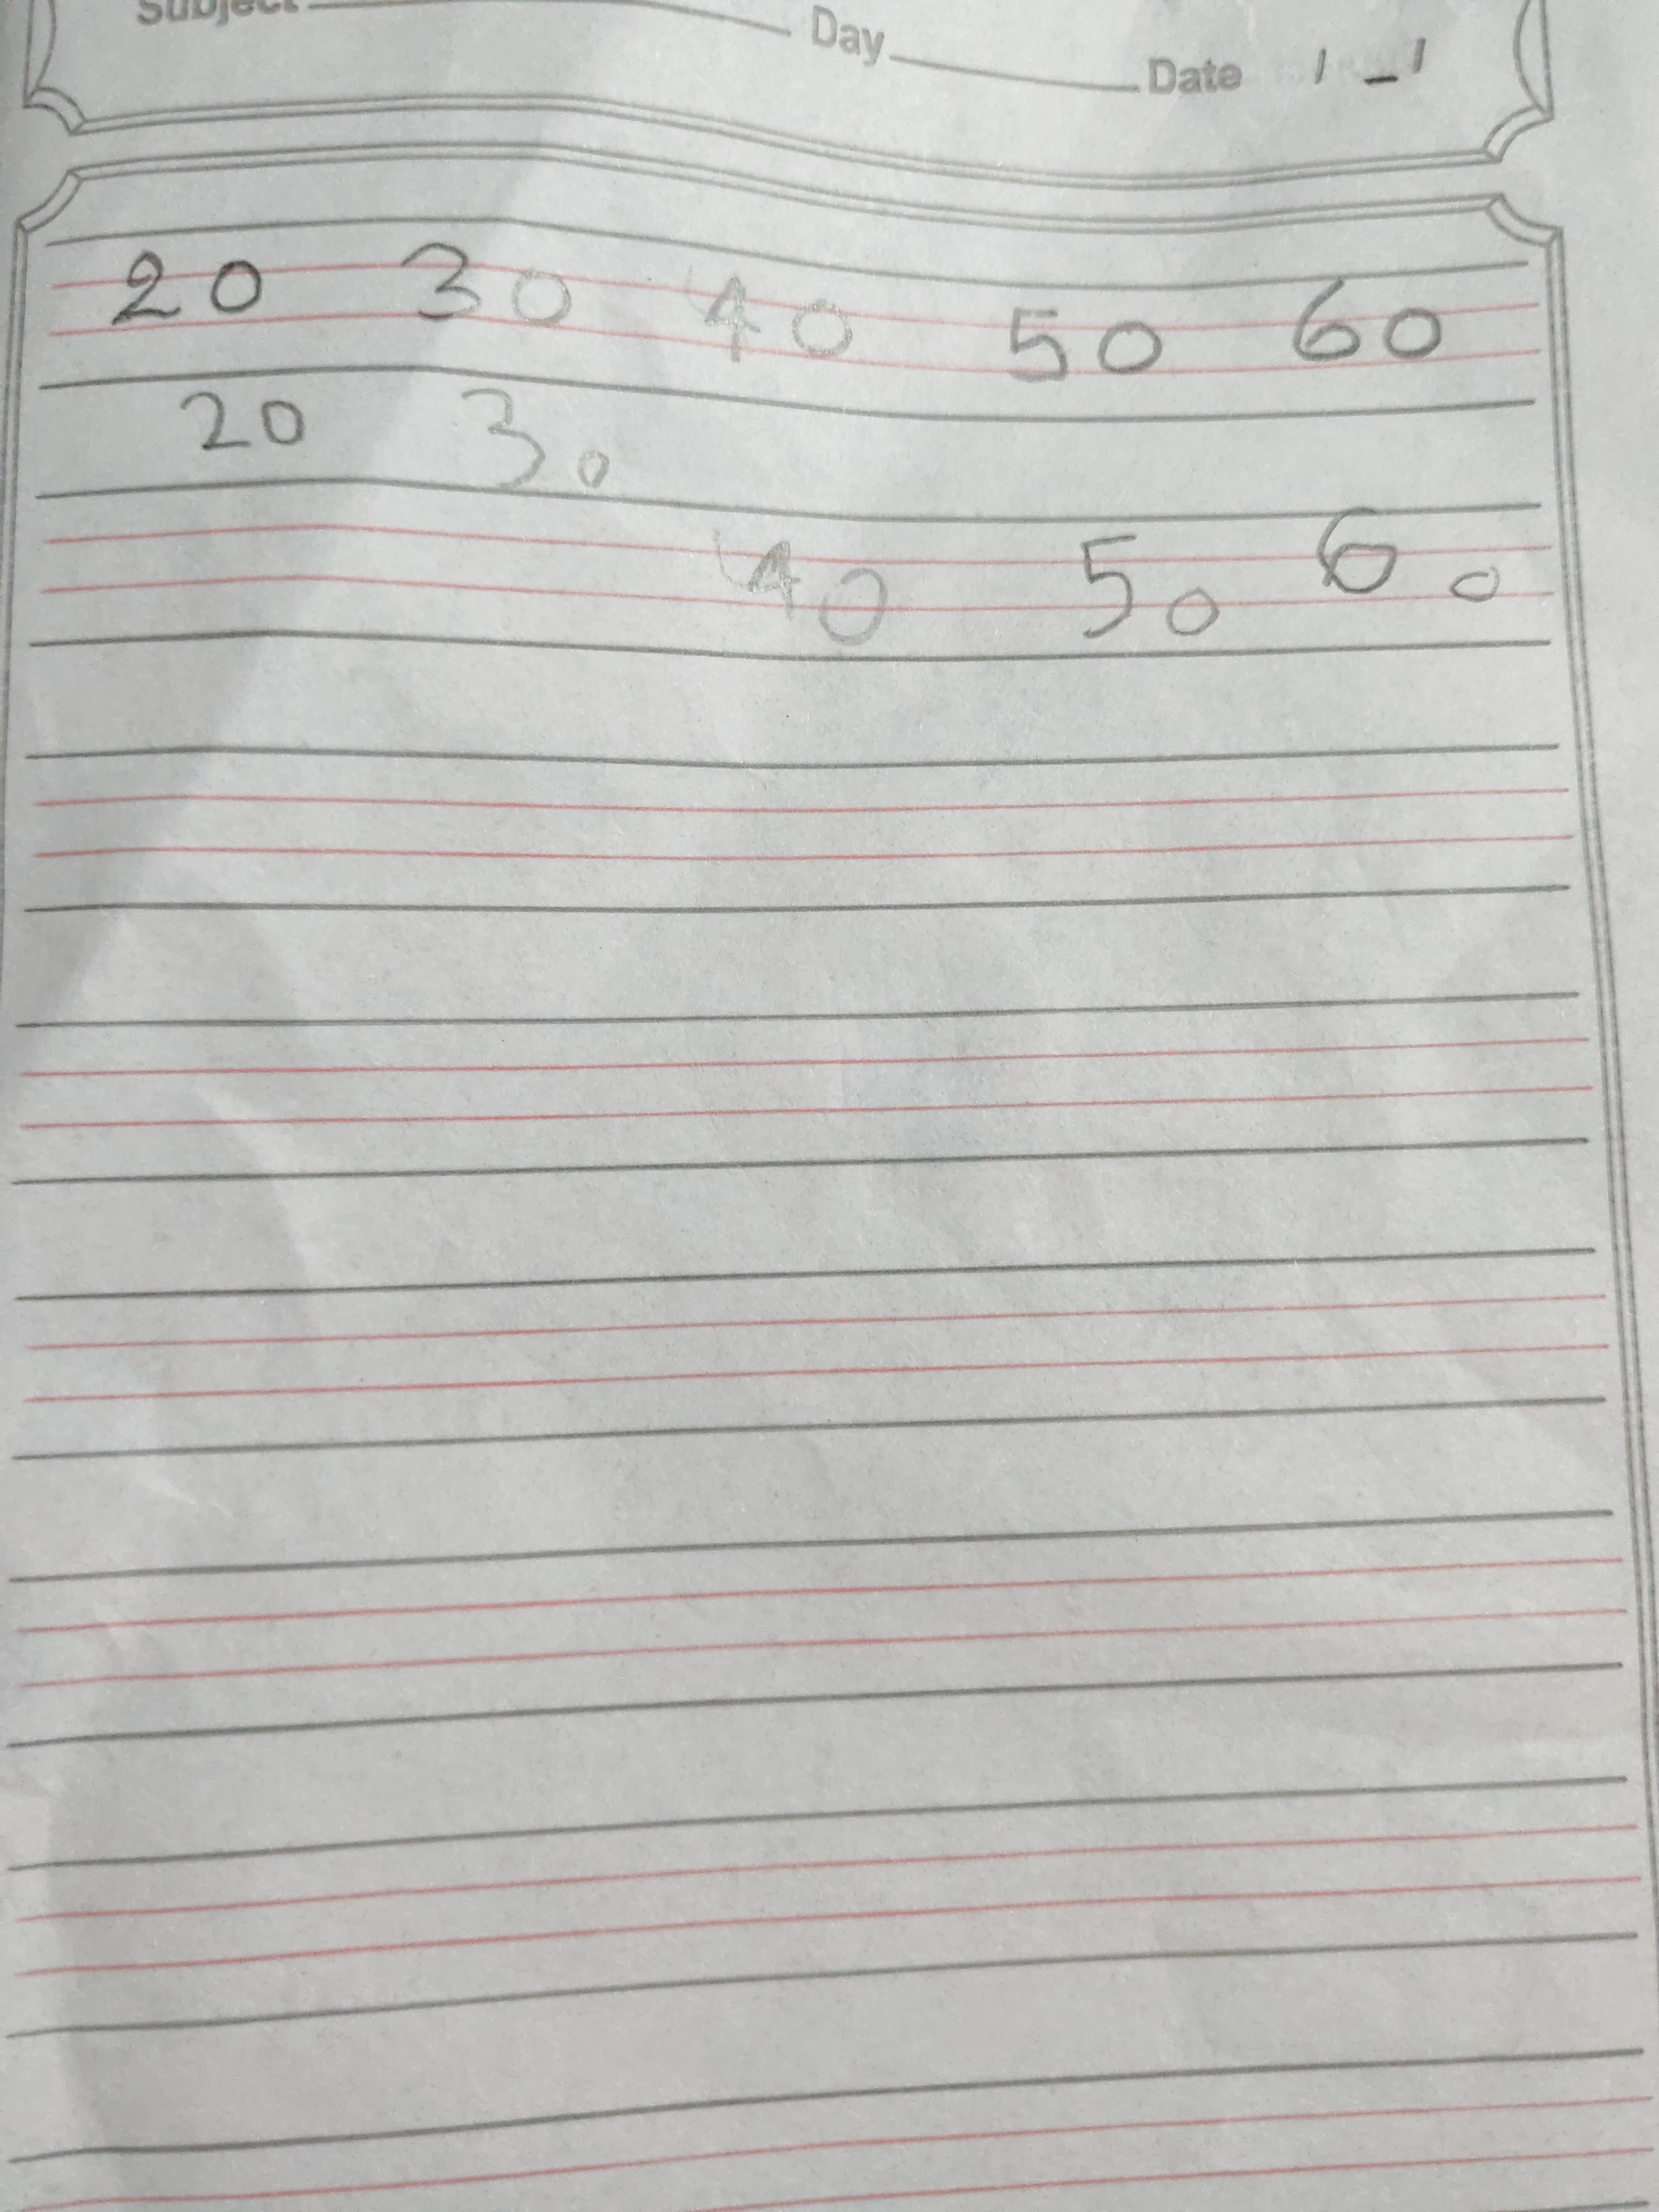 Subject Day Date / /
20 30 40 50 60
20 30
40 50 60